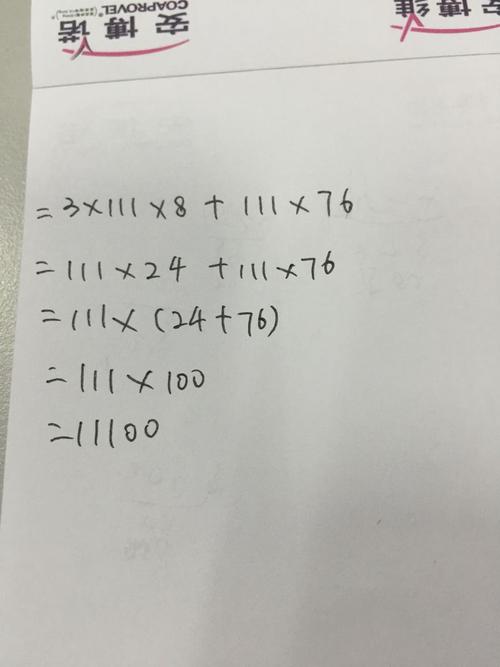 安博诺
COAPROVEL
安博维
=3×111×8+111×76
=111×24+111×76
=111×(24+76)
=111×100
=11100